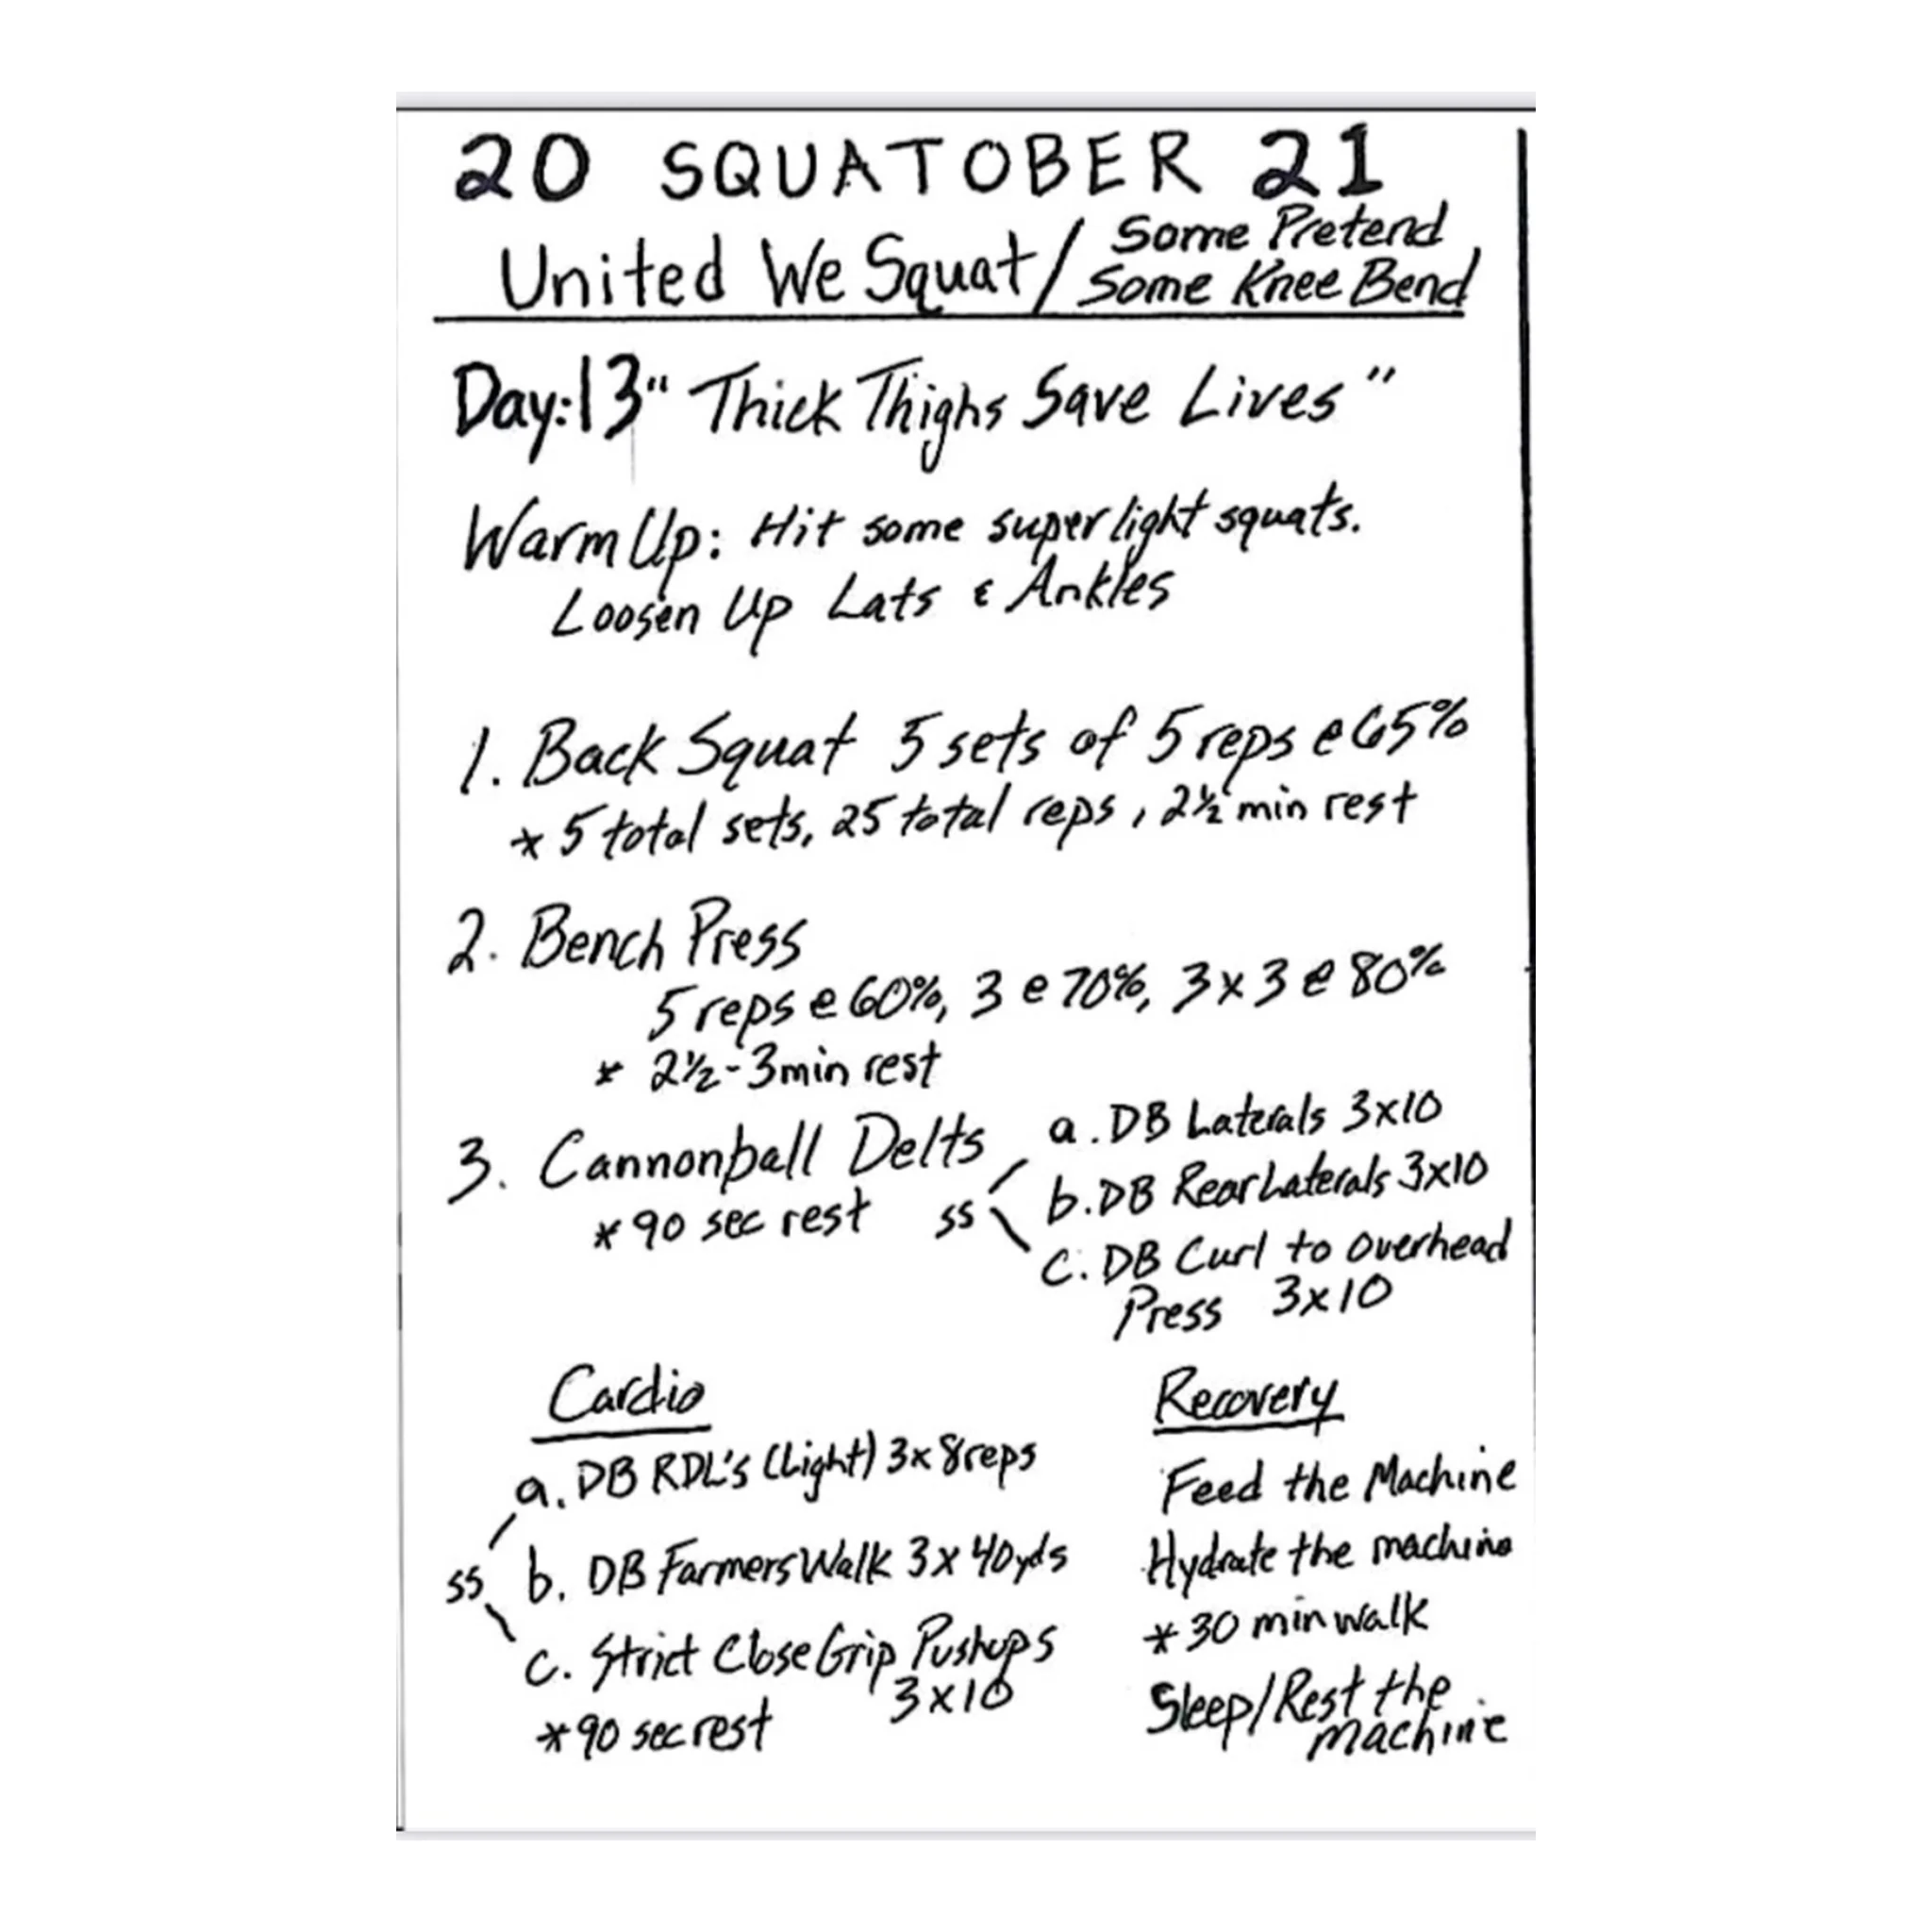 20 SQUATOBER 21
United We Squat / Some Pretend
Some Knee Bend
Day: 13 "Thick Thighs Save Lives"
Warm Up: Hit some super light squats.
Loosen Up Lats & Ankles
1. Back Squat 5 sets of 5 reps @ 65%
* 5 total sets, 25 total reps, 2½ min rest
2. Bench Press
5 reps @ 60%, 3 @ 70%, 3 x 3 @ 80%
* 2½-3min rest
3. Cannonball Delts
* 90 sec rest
ss
a. DB Laterals 3x10
b. DB Rear Laterals 3x10
c. DB Curl to Overhead
Press 3x10
Cardio
ss
a. DB RDL's (Light) 3x8reps
b. DB Farmers Walk 3 x 40yds
c. Strict Close Grip Pushups
3x10
*90 sec rest
Recovery
Feed the Machine
Hydrate the machine
*30 min walk
Sleep/Rest the
machine